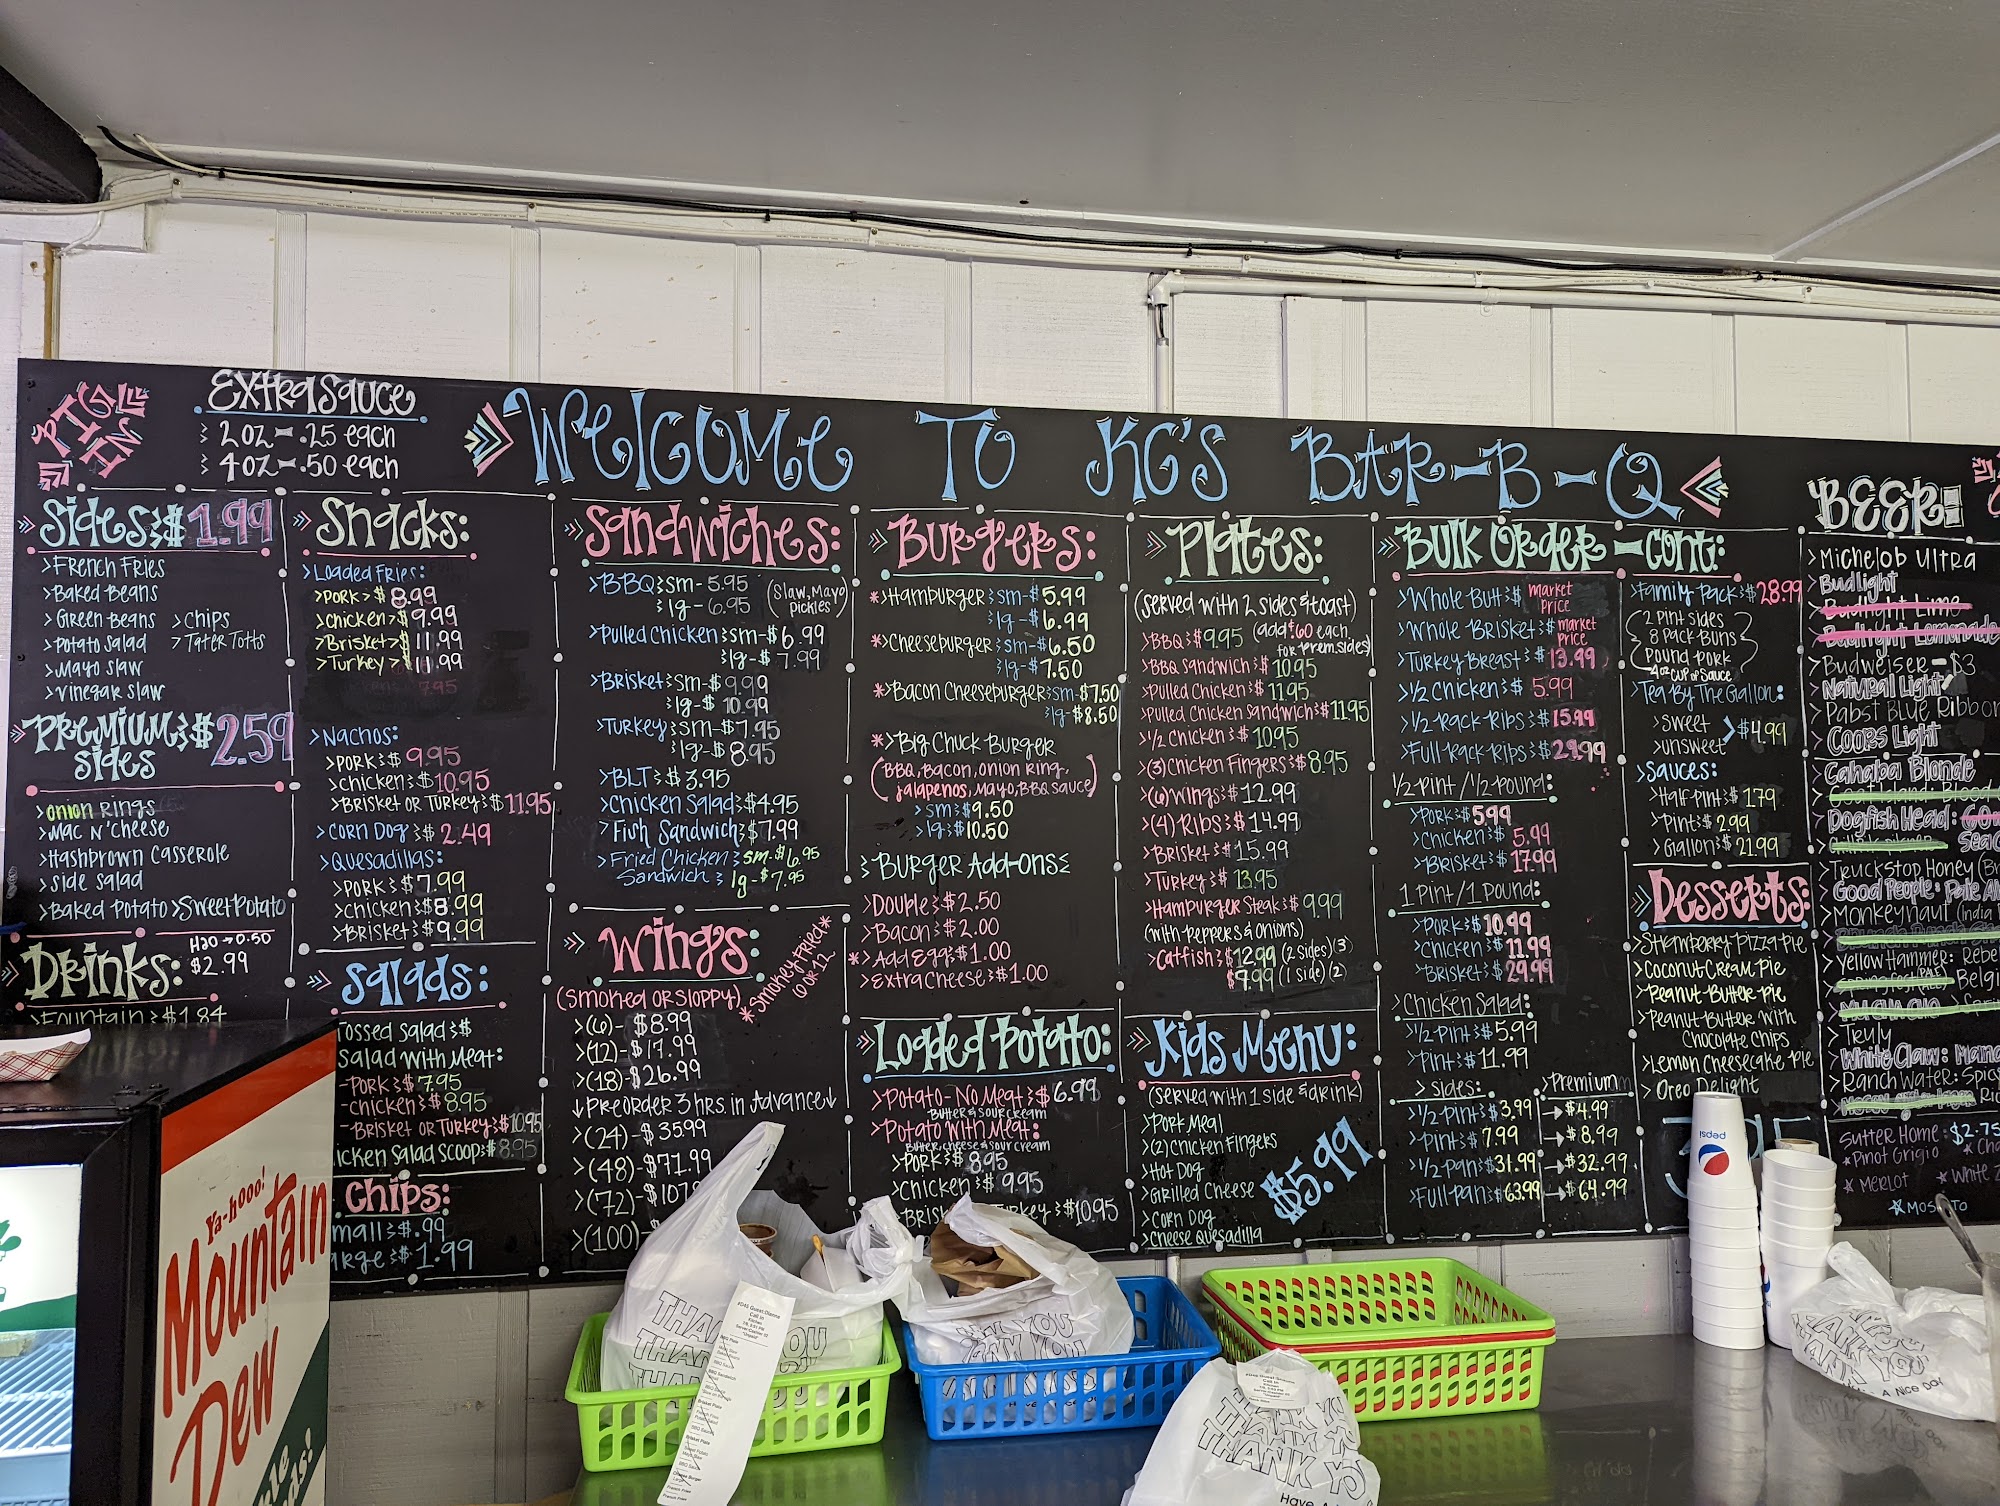 PIG IN
EXTRA SAUCE
2oz - .25 each
4oz - .50 each
WELCOME TO KG'S BAR-B-Q
Sides $1.99
>French Fries
>Baked Beans
>Green Beans >Chips
>Potato Salad >Tater Totts
>Mayo Slaw
>Vinegar Slaw
Premium $2.59
Sides
>Onion Rings
>Mac N' Cheese
>Hashbrown Casserole
>Side Salad
>Baked Potato >Sweet Potato
Drinks: H2O → 0.50
$2.99
>Fountain $1.84
Snacks:
>Loaded Fries:
>Pork>$ 8.99
>Chicken>$ 9.99
>Brisket>$ 11.99
>Turkey>$ 11.99
>Nachos:
>Pork $ 9.95
>Chicken $ 10.95
>Brisket or Turkey $ 11.95
>Corn Dog $ 2.49
>Quesadillas:
>Pork $7.99
>Chicken $8.99
>Brisket $9.99
Salads:
Tossed Salad $
Salad with Meat:
-Pork $7.95
-Chicken $8.95
-Brisket or Turkey $10.95
icken Salad Scoop $8.95
Chips:
mall $.99
arge $1.99
Sandwiches:
>BBQ sm- 5.95 (Slaw, Mayo,
lg- 6.95 pickles)
>Pulled Chicken sm-$6.99
lg-$ 7.99
>Brisket sm-$9.99
lg-$ 10.99
>Turkey sm-$7.95
lg-$8.95
>BLT $3.95
>Chicken Salad $4.95
>Fish Sandwich $7.99
>Fried Chicken sm-$6.95
Sandwich lg-$7.95
Wings:
(Smoked or Sloppy)
*Smokey Fried*
6 or 12
>(6)- $8.99
>(12)-$17.99
>(18)-$26.99
↓Preorder 3 hrs. in Advance↓
>(24)-$35.99
>(48)-$71.99
>(72)-$107.
>(100)-
Burgers:
*>Hamburger sm-$5.99
lg-$6.99
*>Cheeseburger sm-$6.50
lg-$7.50
*>Bacon Cheeseburger sm-$7.50
lg-$8.50
*>Big Chuck Burger
(BBQ, Bacon, Onion Ring,
Jalapenos, Mayo, BBQ Sauce)
>sm $9.50
>lg $10.50
Burger Add-ons
>Double $2.50
>Bacon $2.00
*>Add Egg $1.00
>Extra Cheese $1.00
Loaded Potato:
>Potato-No Meat $6.99
Butter & Sour Cream
>Potato with Meat:
Butter, Cheese & Sour Cream
>Pork $8.95
>Chicken $9.95
Brisk Turkey $10.95
Plates:
(Served with 2 sides & toast)
>BBQ $9.95 (add $.60 each
for Prem. sides)
>BBQ Sandwich $10.95
>Pulled Chicken $11.95
>Pulled Chicken Sandwich $11.95
>1/2 Chicken $10.95
>(3) Chicken Fingers $8.95
>(6) Wings $12.99
>(4) Ribs $14.99
>Brisket $15.99
>Turkey $13.95
>Hamburger Steak $9.99
(with Peppers & Onions)
>Catfish $12.99 (2 sides) (3)
$9.99 (1 side) (2)
Kids Menu:
(Served with 1 side & drink)
>Pork Meal
>(2) Chicken Fingers
>Hot Dog
>Grilled Cheese
>Corn Dog
>Cheese Quesadilla
$5.99
Bulk Order - Cont:
>Whole Butt $ Market Price
>Whole Brisket $ Market Price
>Turkey Breast $13.99
>1/2 Chicken $ 5.99
>1/2 Rack Ribs $15.99
>Full Rack Ribs $29.99
1/2 Pint / 1/2 Pound:
>Pork $ 5.99
>Chicken $ 5.99
>Brisket $17.99
1 Pint / 1 Pound:
>Pork $10.99
>Chicken $11.99
>Brisket $29.99
>Chicken Salad:
>1/2 Pint $5.99
>Pint $11.99
>Sides: >Premium
>1/2 Pint $3.99 → $4.99
>Pint $7.99 → $8.99
>1/2 Pan $31.99 → $32.99
>Full Pan $63.99 → $64.99
>Family Pack $28.99
2 Pint Sides
8 Pack Buns
Pound Pork
4oz Cup of Sauce
>Tea By The Gallon:
>Sweet
>Unsweet >$4.99
>Sauces:
>Half Pint $1.79
>Pint $2.99
>Gallon $21.99
Desserts:
>Strawberry Pizza Pie
>Coconut Cream Pie
>Peanut Butter Pie
>Peanut Butter with
Chocolate Chips
>Lemon Cheesecake Pie
>Oreo Delight
BEER:
>Michelob Ultra
>Budlight
>Budlight Lime
>Budlight Lemonade
>Budweiser - $3
>Natural Light
>Pabst Blue Ribbon
>Coors Light
>Cahaba Blonde
>Dogfish Head:
>Truck Stop Honey (Br
>Good People: Pale Al
>Monkeynaut (India
>Yellow Hammer: Rebel
>Truly
>White Claw: Mang
>Ranch Water: Spic
Sutter Home: $2.75
*Pinot Grigio *Cha
*Merlot *White Z
*Moscato
Ya-hooo!
Mountain
Dew
pepsi
THANK YOU
THANK YOU
THANK YOU
Have A Nice Day